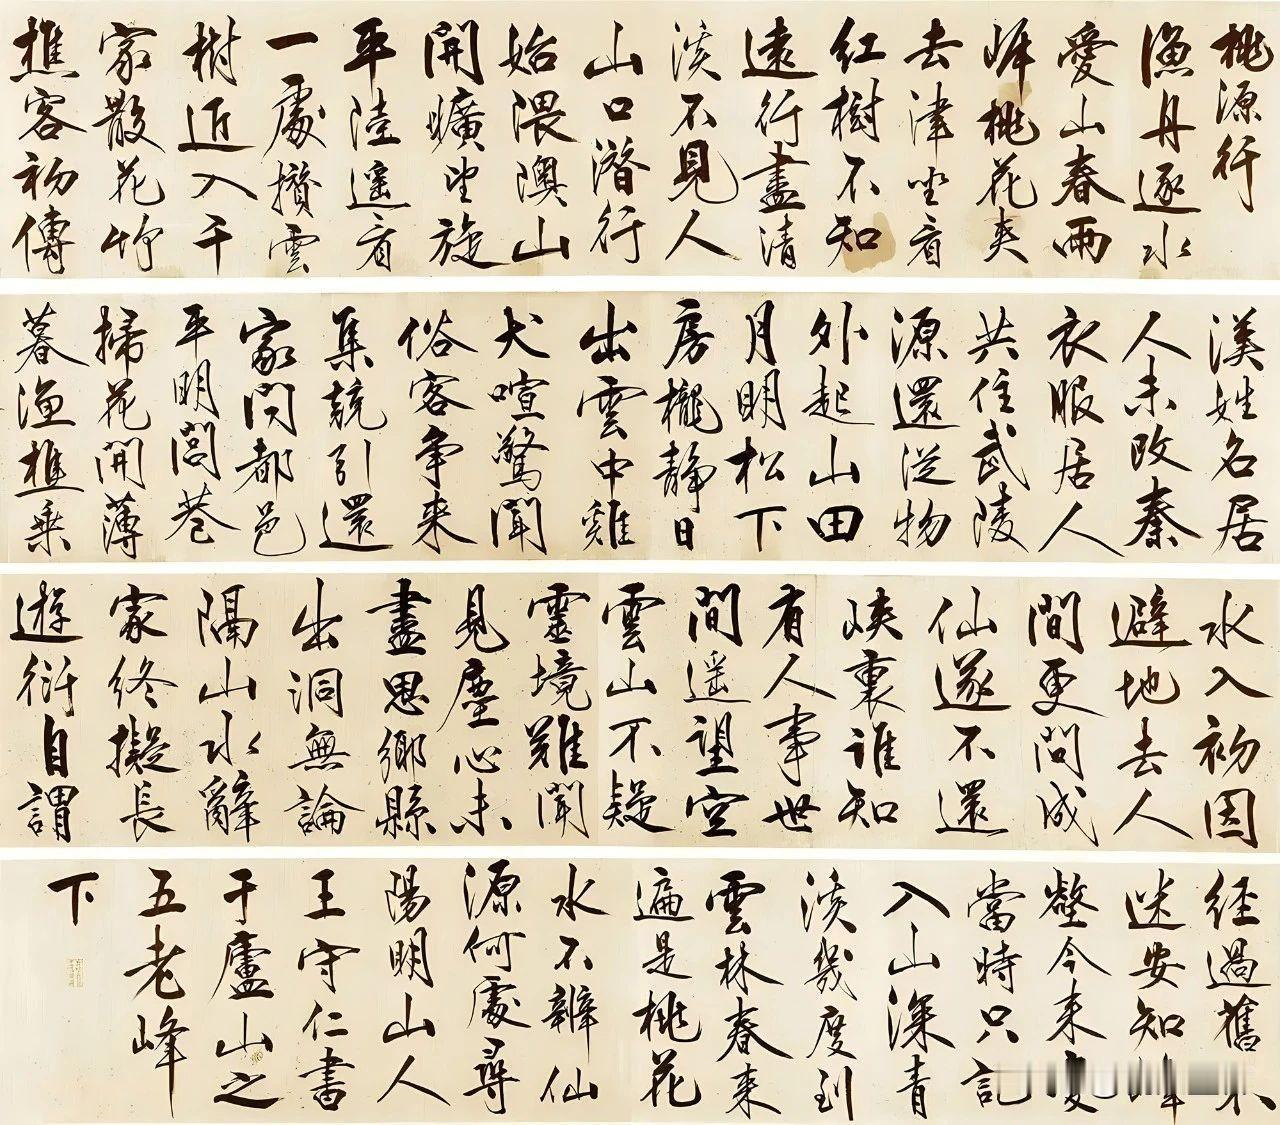 桃源行
漁舟逐水
愛山春兩
岸桃花夾
去津坐看
紅樹不知
遠行盡清
溪不見人
山口潛行
始隈隩山
開曠望旋
平陸遥看
一處攢雲
樹近入千
家散花竹
樵客初傳
漢姓名居
人未改秦
衣服居人
共住武陵
源還從物
外起山田
月明松下
房櫳靜日
出雲中雞
犬喧驚聞
俗客爭来
集競引還
家問都邑
平明閭巷
掃花開薄
暮漁樵乘
水入初因
避地去人
間更問成
仙遂不還
峽裏誰知
有人事世
間遥望空
雲山不疑
靈境難聞
見塵心未
盡思鄉縣
出洞無論
隔山水辭
家終擬長
遊衍自謂
經過舊不
迷安知峰
壑今来變
當時只記
入山深青
溪幾度到
雲林春来
遍是桃花
水不辨仙
源何處尋
陽明山人
王守仁書
于廬山之
五老峰
下